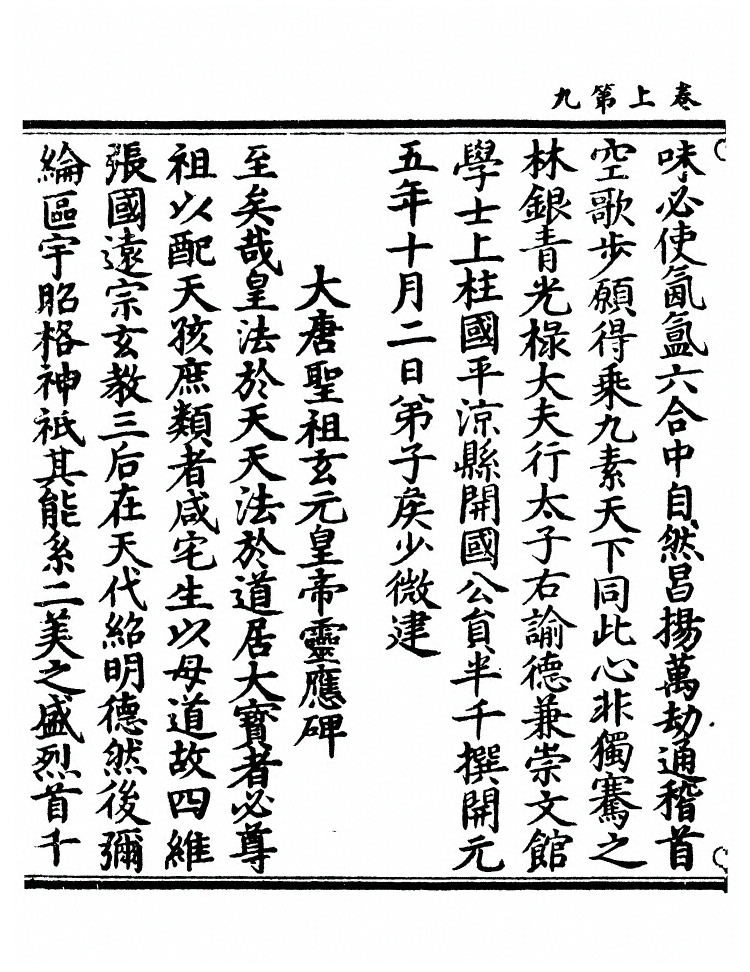 卷上第九
味必使氤氳六合中自然昌揚萬劫通稽首
空歌步願得乘九素天下同此心非獨騫之
林銀青光祿大夫行太子右諭德兼崇文館
學士上柱國平涼縣開國公貟半千撰開元
五年十月二日弟子矦少微建
大唐聖祖玄元皇帝靈應碑
至矣哉皇法於天天法於道居大寶者必尊
祖以配天孩庶類者咸宅生以母道故四維
張國遠宗玄教三后在天代紹明德然後彌
綸區宇昭格神祇其能系二美之盛烈首千